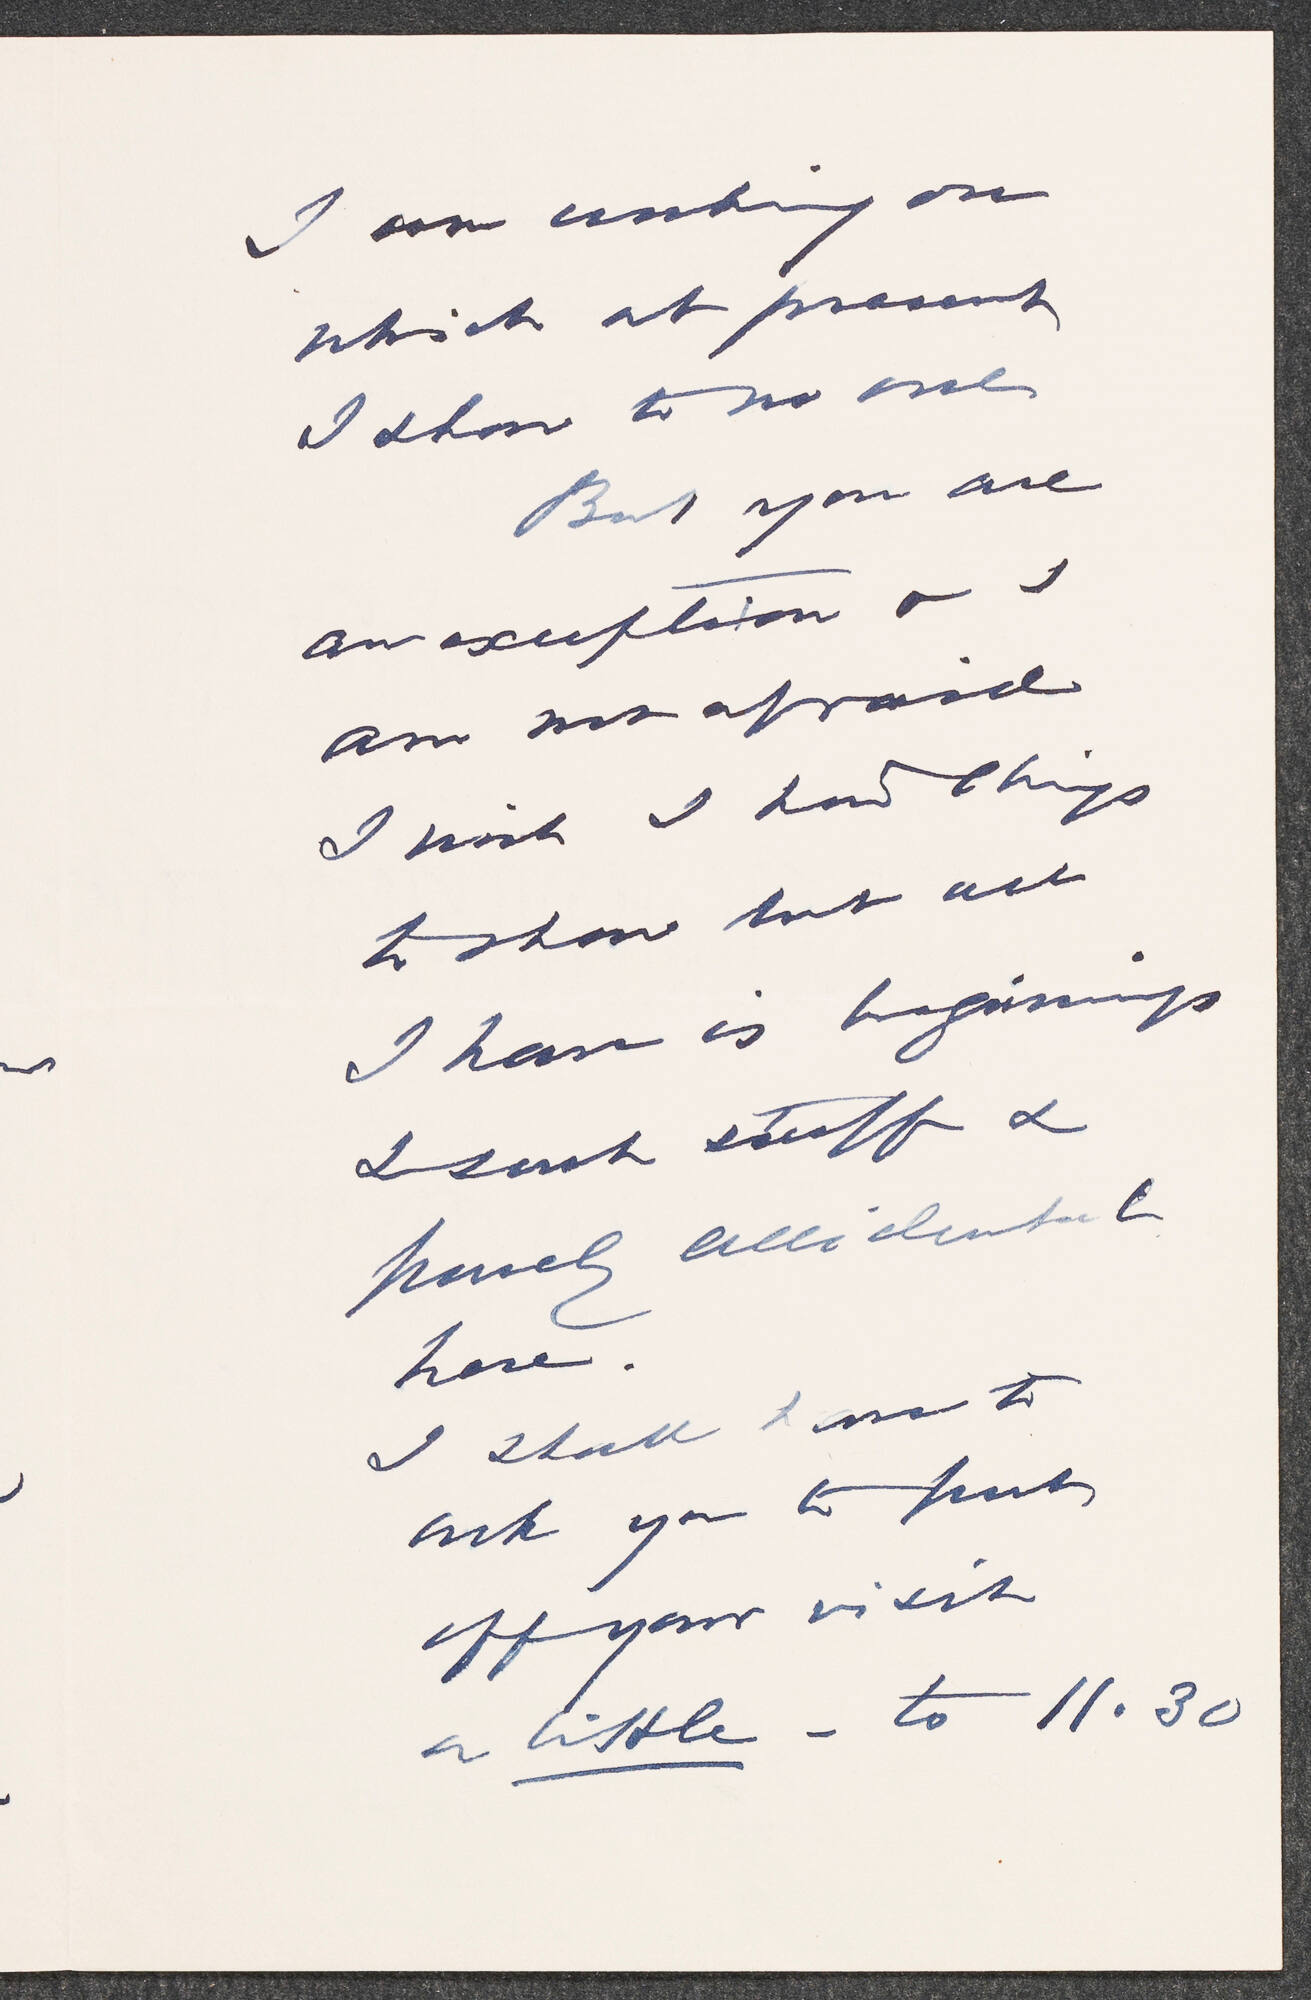 I am working on
which at present
I show to no one
But you are
an exception & I
am not afraid
I wish I had things
to show but all
I have is beginnings
& such stuff &
purely accidental
here.
I shall have to
ask you to put
off your visit
a little – to 11.30